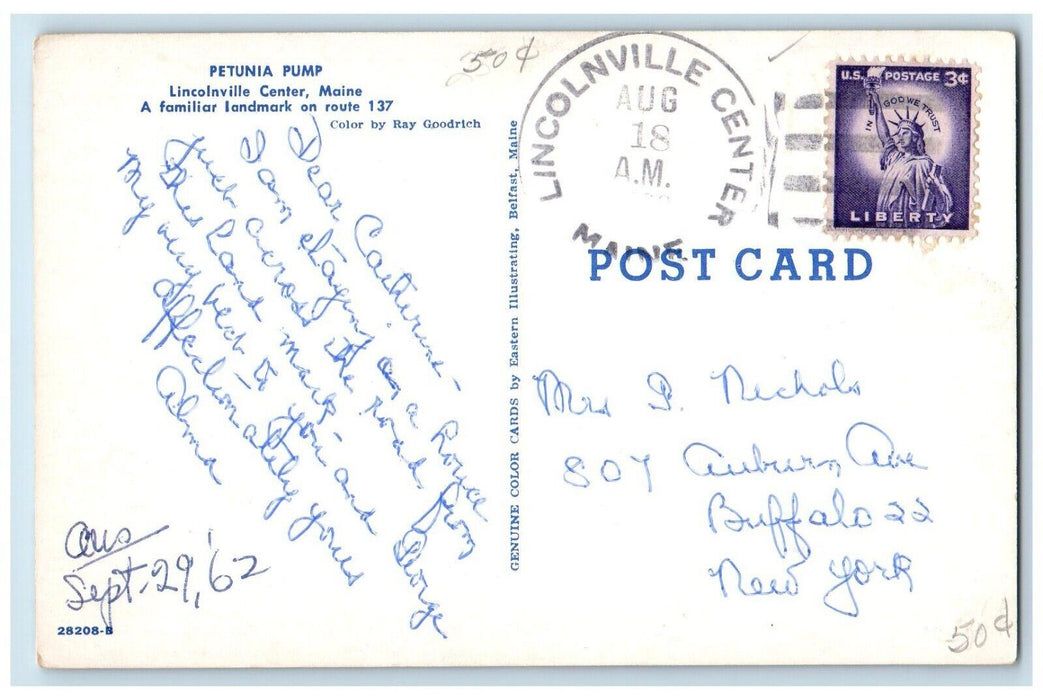 PETUNIA PUMP
Lincolnville Center, Maine
A familiar landmark on route 137
Color by Ray Goodrich
50¢
LINCOLNVILLE CENTER
AUG
18
A.M.
MAINE
U.S. POSTAGE 3¢
IN GOD WE TRUST
LIBERTY
POST CARD
Dear Catherine -
I am staying in a house
just across the road from
this land mark - and
My very best to you and George
affectionately yours
Alma
Ans
Sept. 29, '62
28208-B
GENUINE COLOR CARDS by Eastern Illustrating, Belfast, Maine
Mrs Nichols
807 Auburn Ave
Buffalo 22
New York
50¢